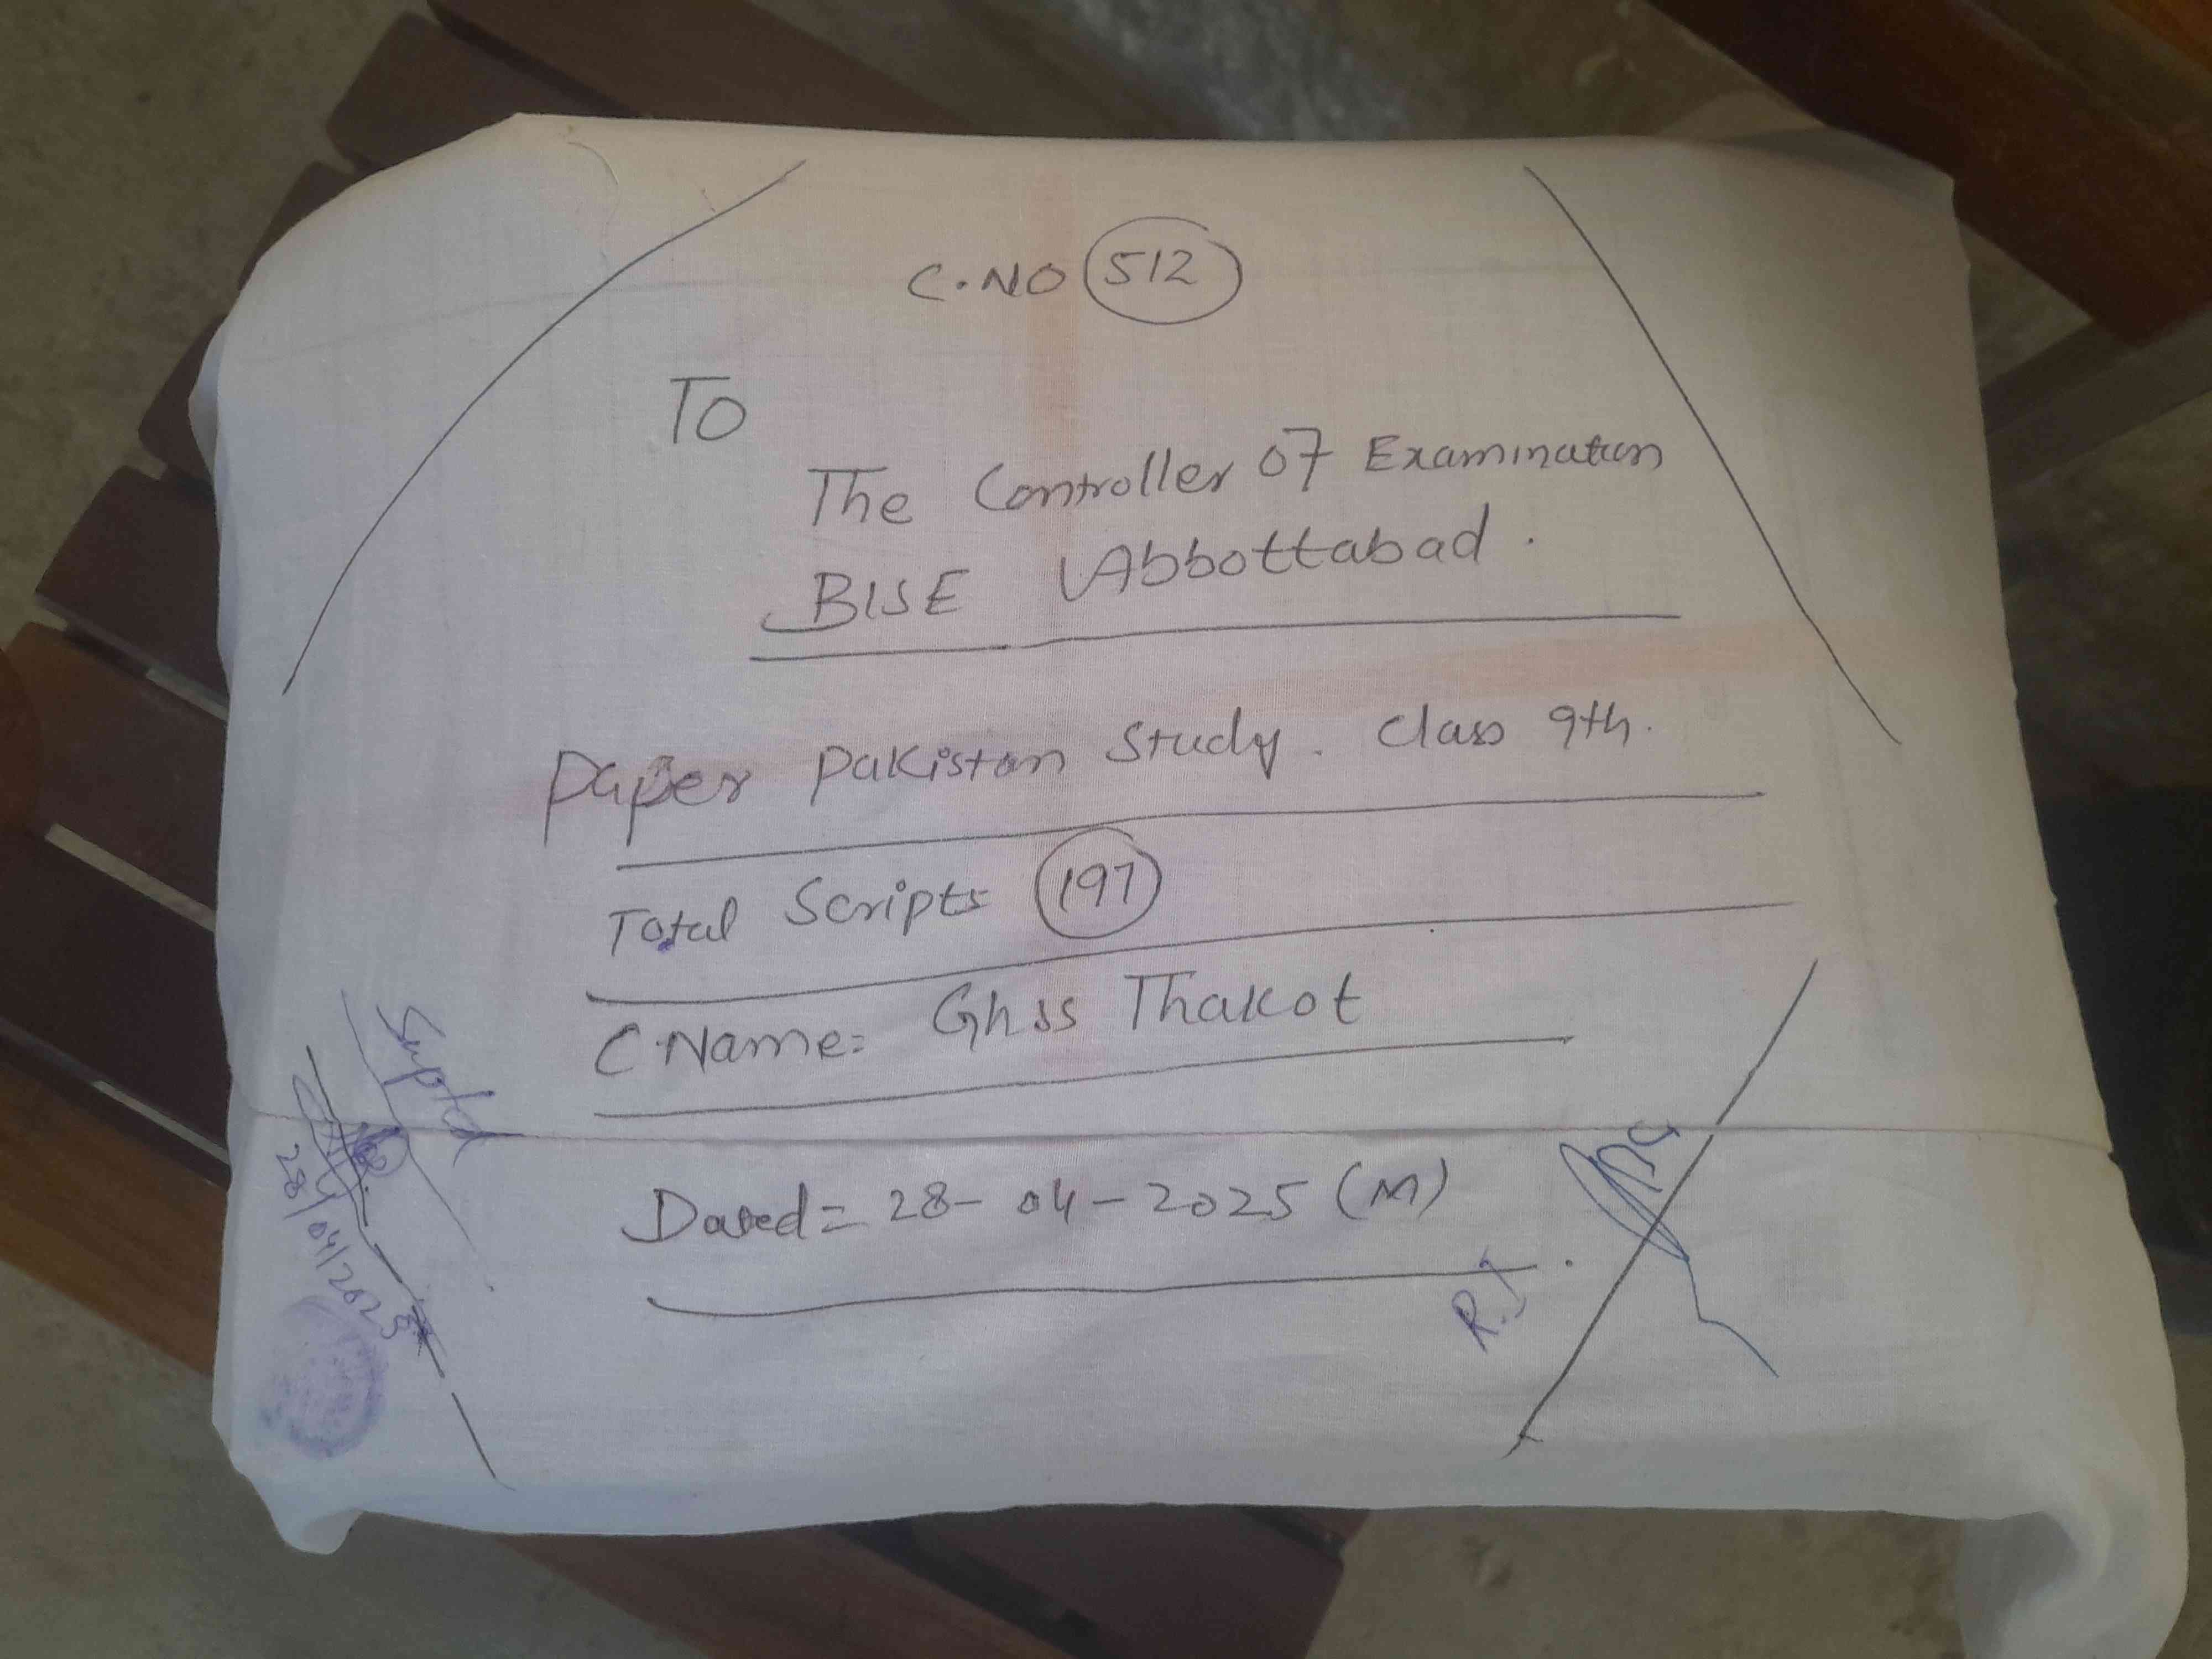 C.NO 512
TO
The Controller Of Examination
BISE Abbottabad.
Paper Pakistan Study. Class 9th.
Total Scripts 197
C.Name= Ghss Thakot
Dated= 28-04-2025 (M)
Suptd
28/04/2025
R.I